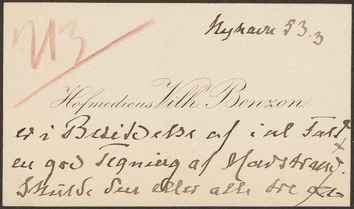 213
Nyhavn 53.3
Hofmedicus Vilh. Bonzon
er i Besiddelse af i al Fald
en god Tegning af Marstrand.
Skulde den eller alle tre